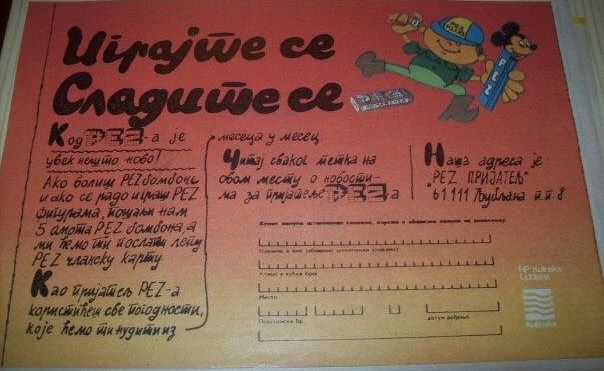 Играјте се
Сладите се
Код PEZ-а је
увек нешто ново!
Ако волиш PEZ бомбоне
и ако се радо играш PEZ
фигурама, пошаљи нам
5 омота PEZ бомбона, а
ми ћемо ти послати лепу
PEZ чланску карту
Као пријатељ PEZ-а
користићеш све погодности,
које ћемо ти нудити из
месеца у месец
Читај сваког петка на
овом месту о новости-
ма за пријатеље PEZ-а
Наша адреса је:
"PEZ ПРИЈАТЕЉ"
61 111 Љубљана п.п. 8
PEZ
PEZ
Презиме и име
Улица и кућни број
Место
Поштански бр.
датум рођења
HP Kolinska
Ljubljana
Kolinska